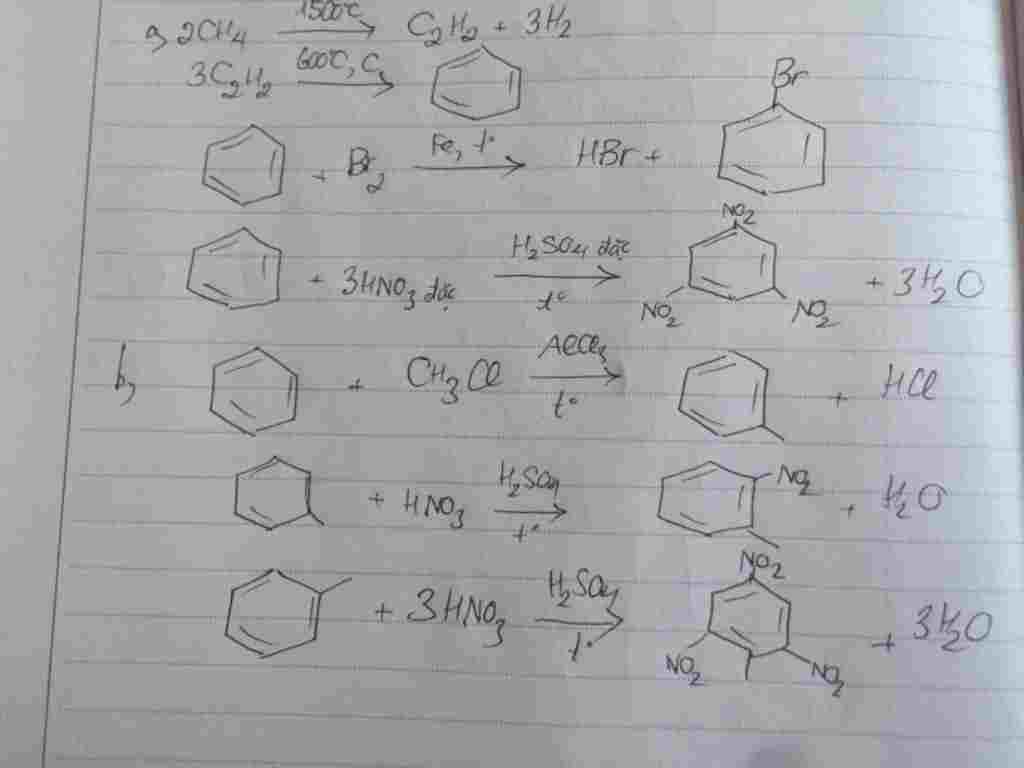 a, 2CH4 1500°C → C2H2 + 3H2
3C2H2 600°C, C →
+ Br2 Fe, t° → HBr + Br
+ 3HNO3 đặc H2SO4 đặc → t° NO2 NO2 NO2 + 3H2O
b, + CH3Cl AlCl3 → t° + HCl
+ HNO3 H2SO4 → t° NO2 + H2O
+ 3HNO3 H2SO4 → t° NO2 NO2 NO2 + 3H2O